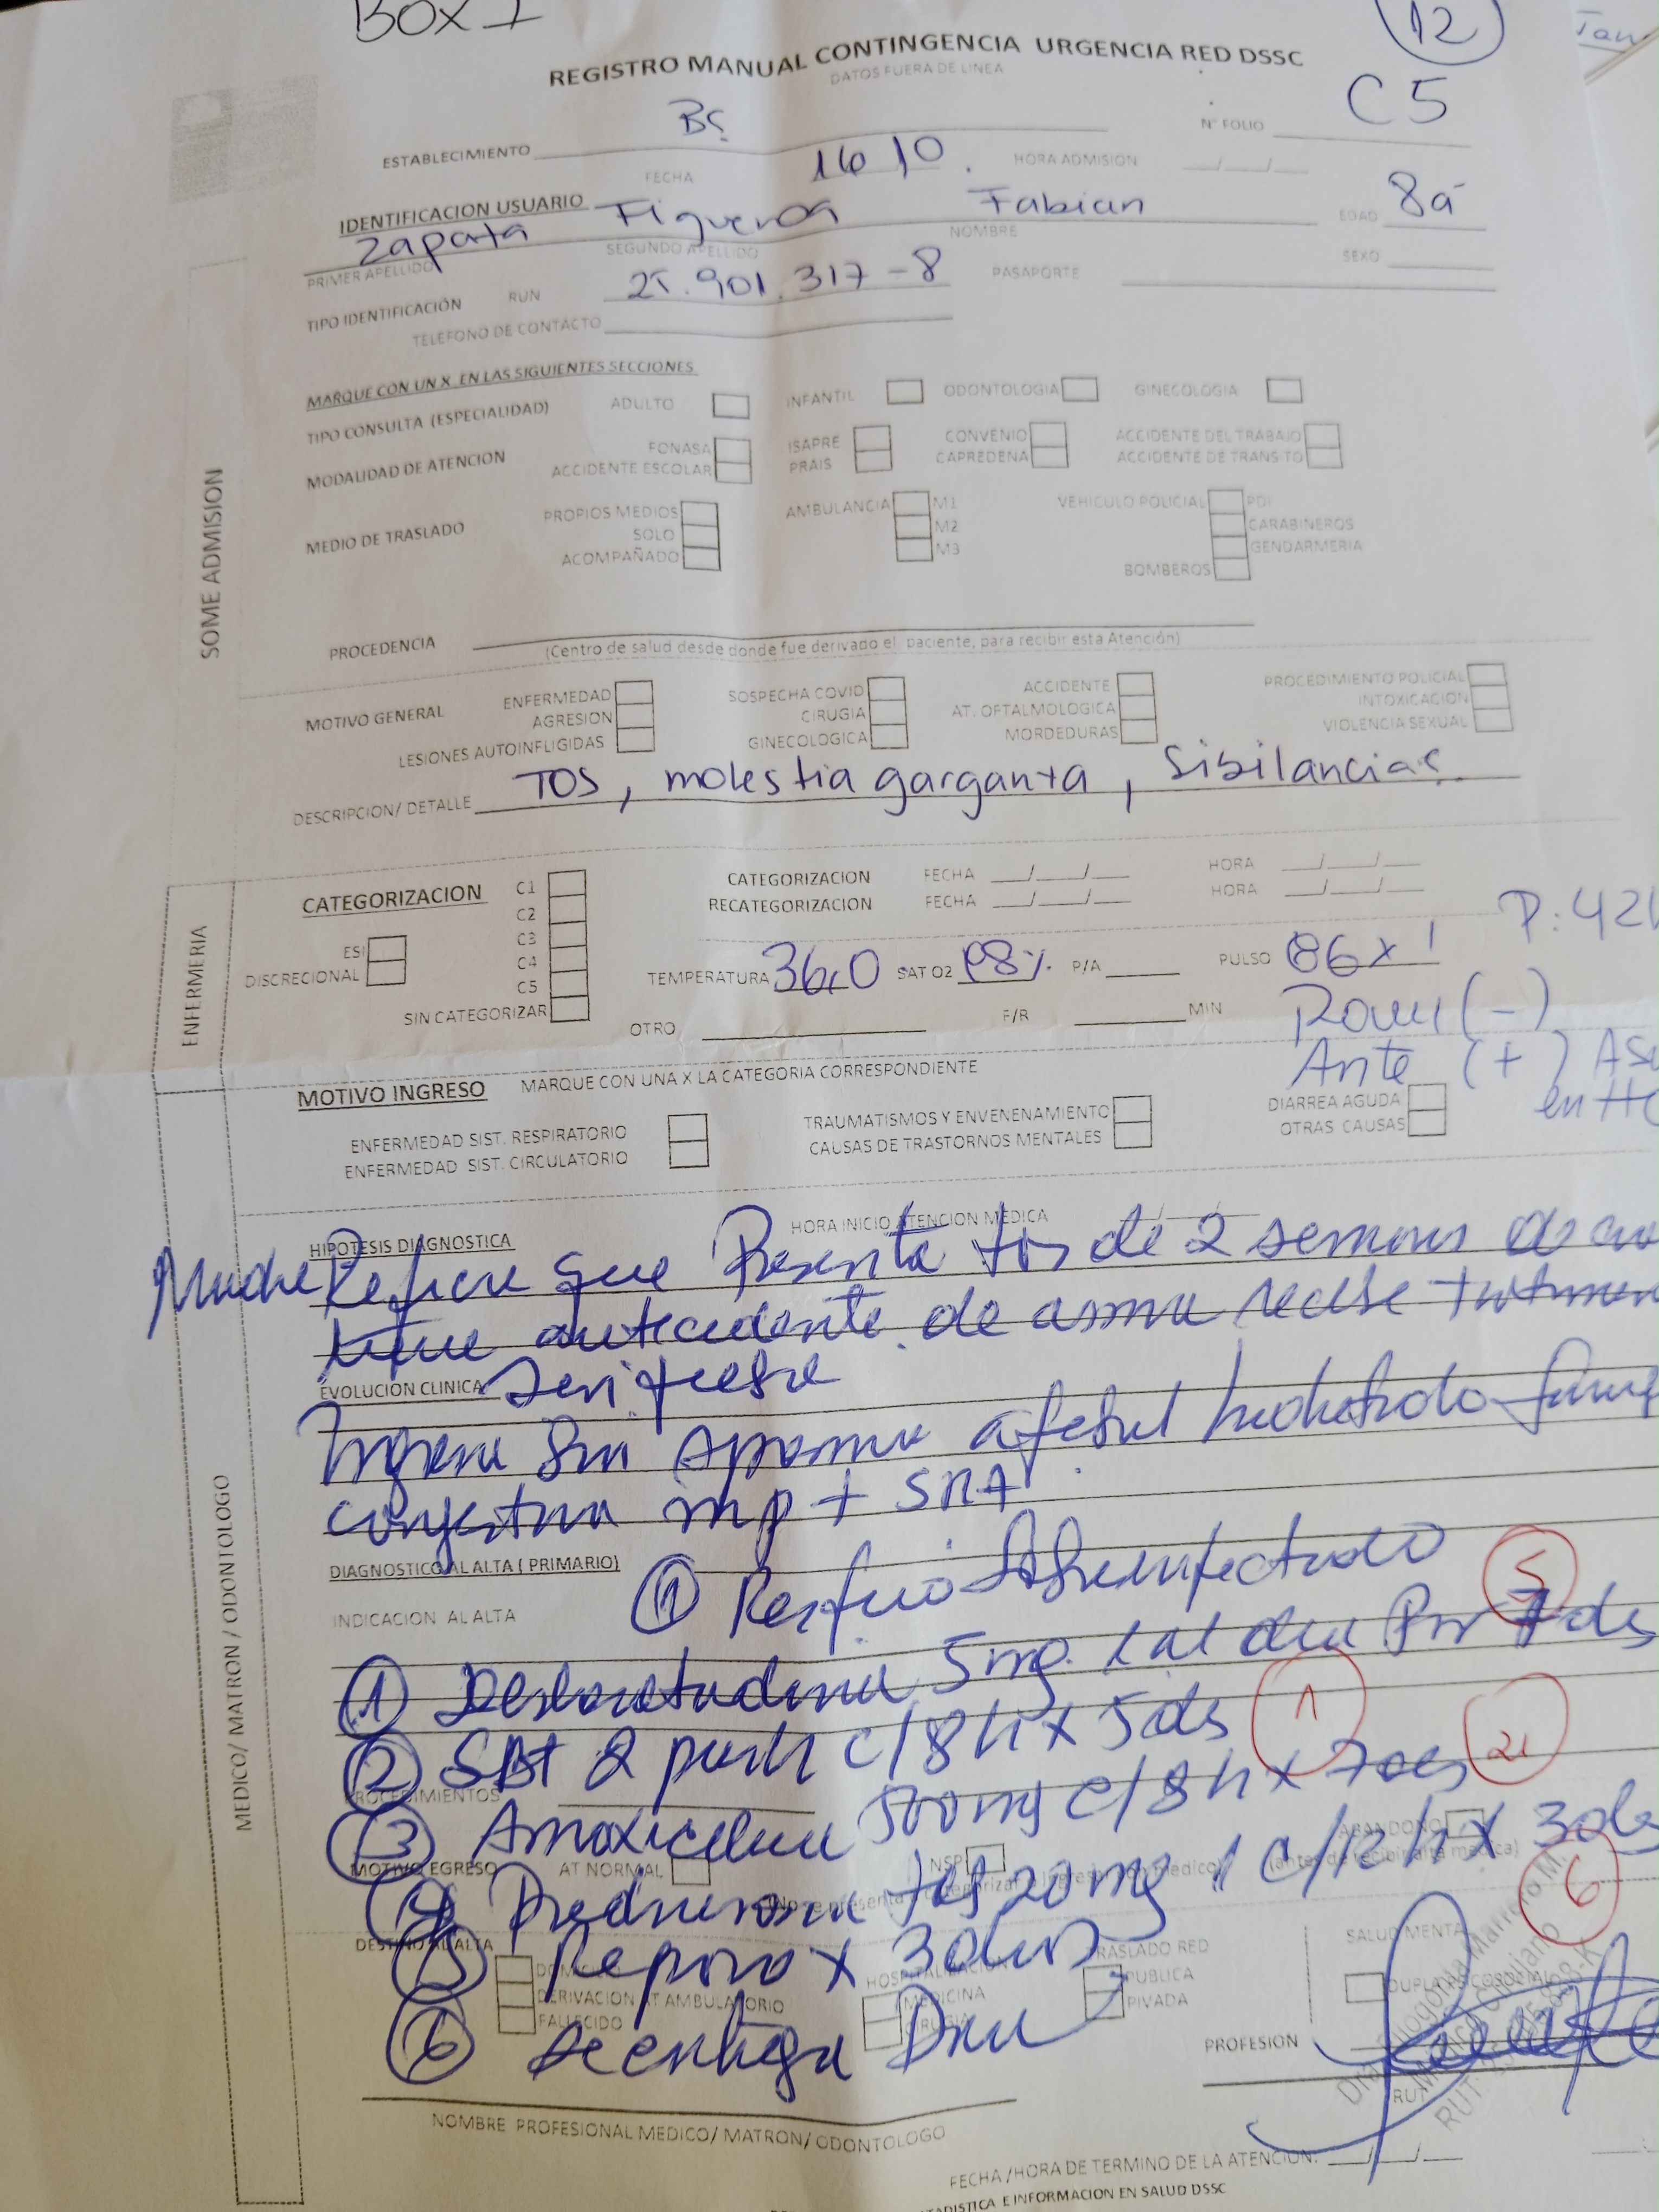 BOX 1
12
REGISTRO MANUAL CONTINGENCIA URGENCIA RED DSSC
DATOS FUERA DE LINEA
C5
ESTABLECIMIENTO Bs
N° FOLIO
FECHA 16/10.
HORA ADMISION __/__/__
IDENTIFICACION USUARIO
Zapata Figueroa Fabian
EDAD 8a
PRIMER APELLIDO SEGUNDO APELLIDO NOMBRE
SEXO
TIPO IDENTIFICACIÓN RUN 25.901.317-8 PASAPORTE
TELEFONO DE CONTACTO
MARQUE CON UN X EN LAS SIGUIENTES SECCIONES
TIPO CONSULTA (ESPECIALIDAD) ADULTO INFANTIL ODONTOLOGIA GINECOLOGIA
MODALIDAD DE ATENCION FONASA ISAPRE CONVENIO ACCIDENTE DEL TRABAJO
ACCIDENTE ESCOLAR PRAIS CAPREDENA ACCIDENTE DE TRANSITO
MEDIO DE TRASLADO PROPIOS MEDIOS AMBULANCIA M1 VEHICULO POLICIAL PDI
SOLO M2 CARABINEROS
ACOMPAÑADO M3 GENDARMERIA
BOMBEROS
SOME ADMISION
PROCEDENCIA
(Centro de salud desde donde fue derivado el paciente, para recibir esta Atención)
MOTIVO GENERAL ENFERMEDAD SOSPECHA COVID ACCIDENTE PROCEDIMIENTO POLICIAL
AGRESION CIRUGIA AT. OFTALMOLOGICA INTOXICACION
LESIONES AUTOINFLIGIDAS GINECOLOGICA MORDEDURAS VIOLENCIA SEXUAL
DESCRIPCION/ DETALLE TOS, molestia garganta, Sibilancias
ENFERMERIA
CATEGORIZACION C1 CATEGORIZACION FECHA __/__/__ HORA __/__/__
C2 RECATEGORIZACION FECHA __/__/__ HORA __/__/__
ESI C3
DISCRECIONAL C4
C5
SIN CATEGORIZAR
TEMPERATURA 36,0 SAT O2 98% P/A PULSO 86x'
P: 42
OTRO F/R MIN
Rami (-)
Ante (+)
en
MOTIVO INGRESO MARQUE CON UNA X LA CATEGORIA CORRESPONDIENTE
ENFERMEDAD SIST. RESPIRATORIO TRAUMATISMOS Y ENVENENAMIENTO DIARREA AGUDA
ENFERMEDAD SIST. CIRCULATORIO CAUSAS DE TRASTORNOS MENTALES OTRAS CAUSAS
MEDICO/ MATRON / ODONTOLOGO
HORA INICIO ATENCION MEDICA
HIPOTESIS DIAGNOSTICA
Madre Refiere que Presenta tos de 2 semanas de
tiene antecedente de asma recibe
EVOLUCION CLINICA
Ingresa afebril hidratado
congestiva mp + SRA
DIAGNOSTICO AL ALTA ( PRIMARIO)
① Resfrio Sobreinfectado
INDICACION AL ALTA
① Desloratadina 5 mg. 1 al dia Por 7 ds
5
② SBT 2 push c/8h x 5 ds
1
PROCEDIMIENTOS
③ Amoxicilina 500 mg c/8h x 7 ds
21
ABANDONO
MOTIVO EGRESO AT NORMAL NSP
④ Prednisona tab 20 mg 1 c/12h x 3 ds
6
DESTINO AL ALTA
⑤ Reposo x 3 dias
DOMICILIO HOSPITALIZACION TRASLADO RED SALUD MENTAL
DERIVACION AT AMBULATORIO MEDICINA PUBLICA DUPLA PSICOSOCIAL
FALLECIDO CIRUGIA PIVADA
⑥ Se entrega
PROFESION
RUT
NOMBRE PROFESIONAL MEDICO/ MATRON/ ODONTOLOGO
FECHA /HORA DE TERMINO DE LA ATENCION: __/__/__
E INFORMACION EN SALUD DSSC